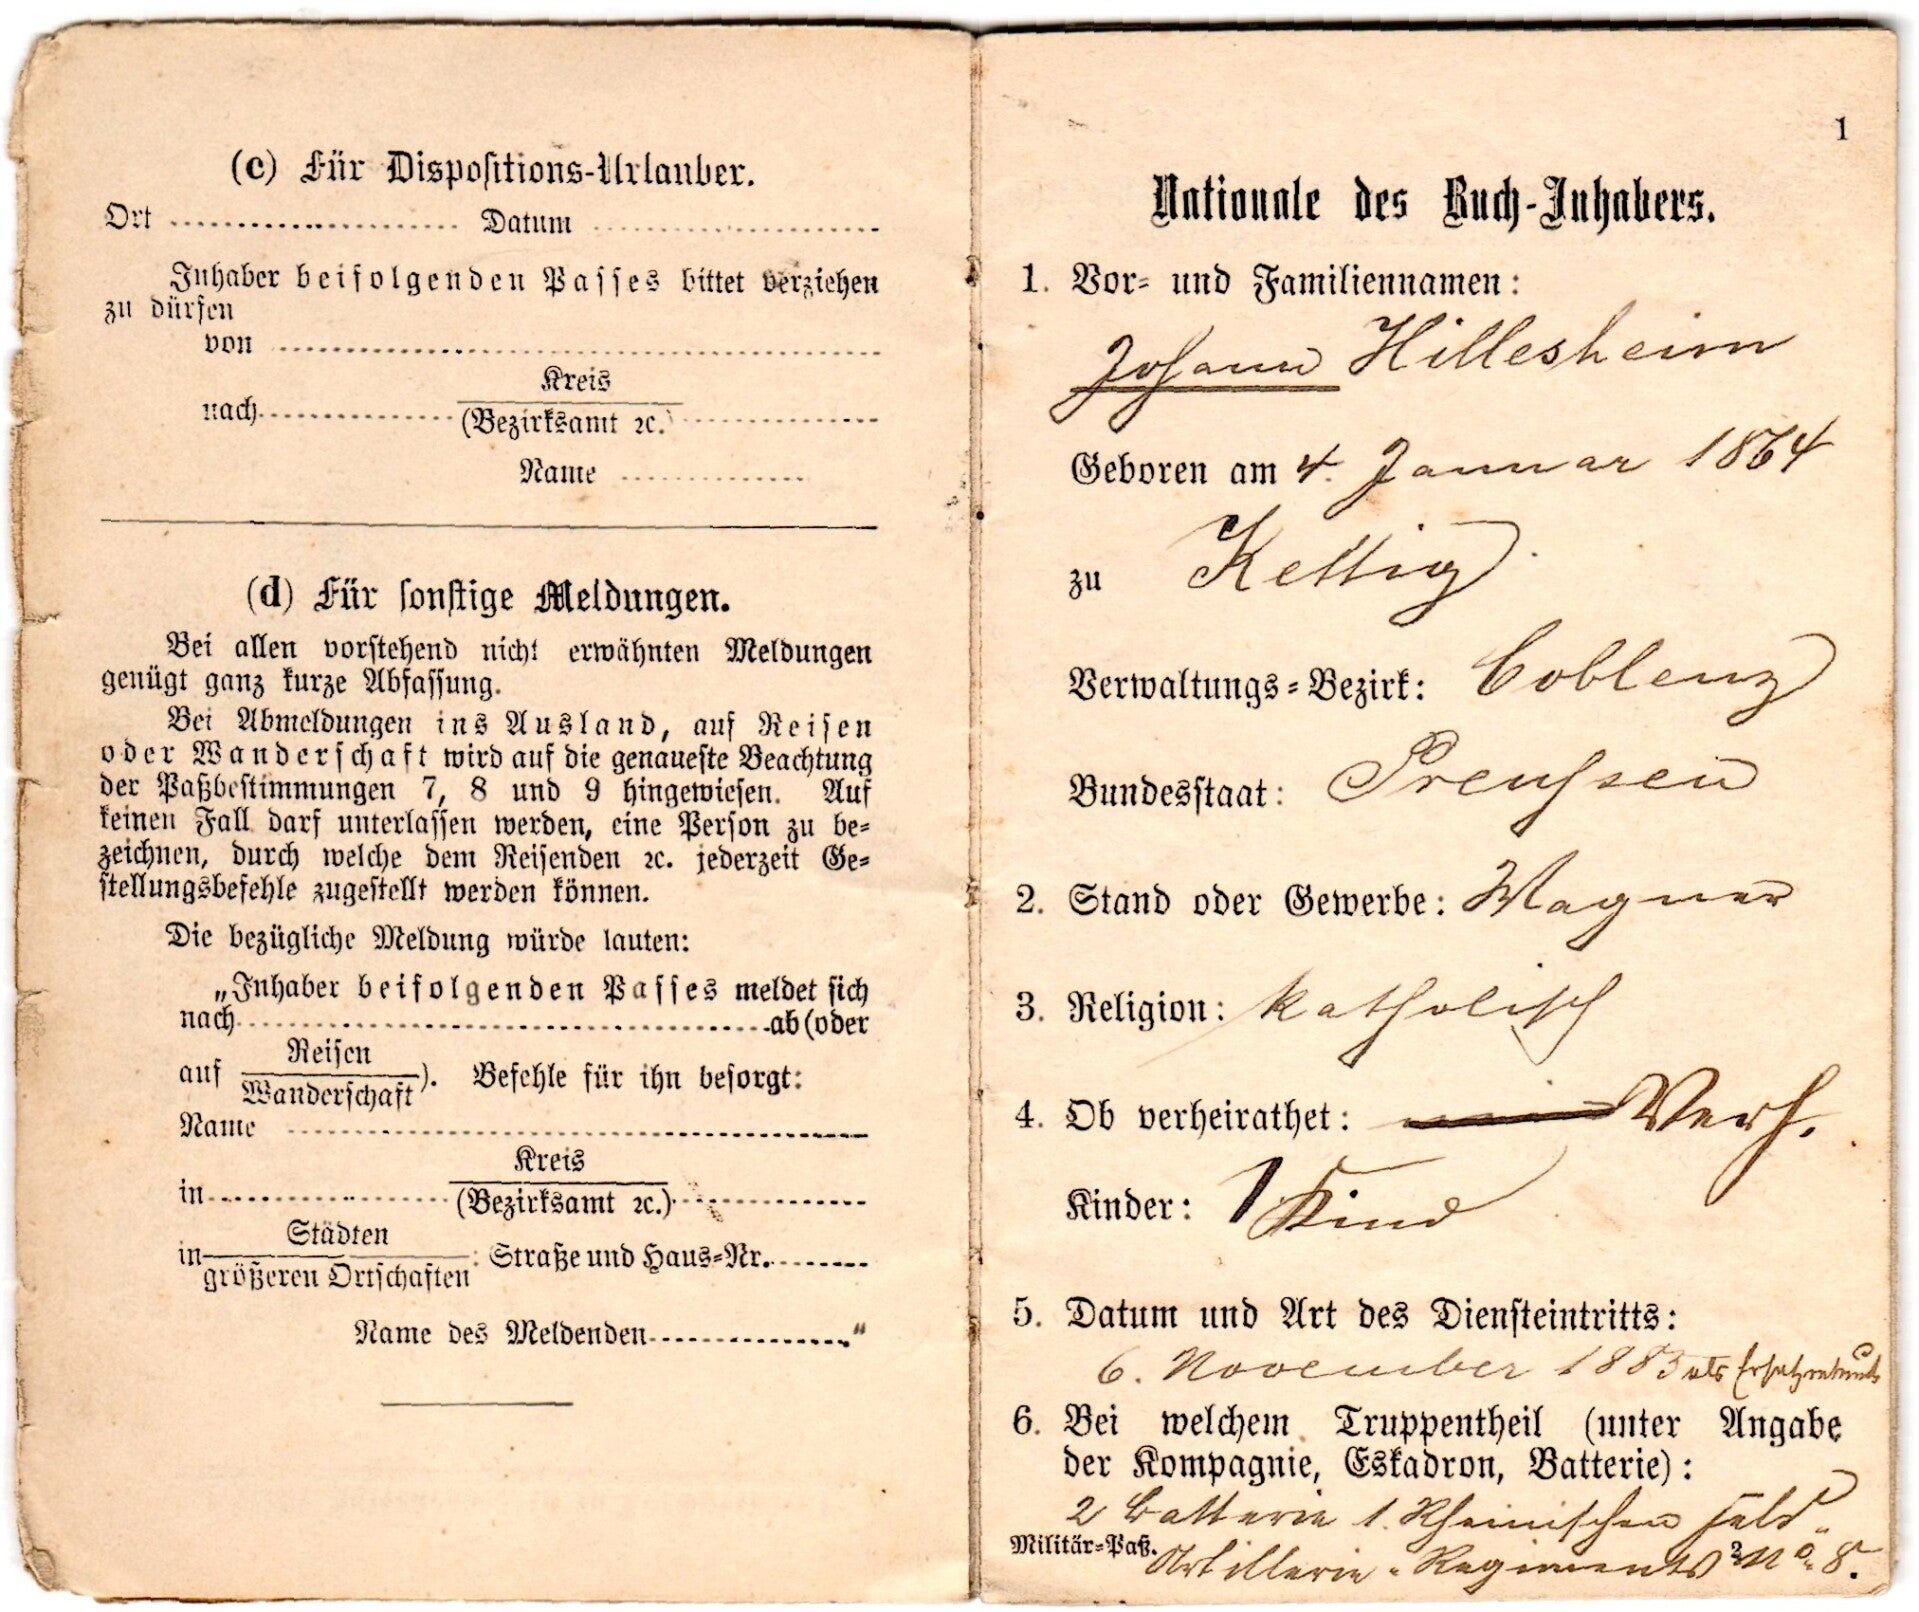 (c) Für Dispositions-Urlauber.
Ort .......... Datum ..........
Inhaber beifolgenden Passes bittet verziehen
zu dürfen
von ..........
Kreis
nach .......... (Bezirksamt ꝛc.) ..........
Name ..........
(d) Für sonstige Meldungen.
Bei allen vorstehend nicht erwähnten Meldungen
genügt ganz kurze Abfassung.
Bei Abmeldungen ins Ausland, auf Reisen
oder Wanderschaft wird auf die genaueste Beachtung
der Paßbestimmungen 7, 8 und 9 hingewiesen. Auf
keinen Fall darf unterlassen werden, eine Person zu be-
zeichnen, durch welche dem Reisenden ꝛc. jederzeit Ge-
stellungsbefehle zugestellt werden können.
Die bezügliche Meldung würde lauten:
„Inhaber beifolgenden Passes meldet sich
nach .......... ab (oder
Reisen
auf Wanderschaft). Befehle für ihn besorgt:
Name ..........
Kreis
in .......... (Bezirksamt ꝛc.) ..........
Städten
in größeren Ortschaften: Straße und Haus-Nr. ..........
Name des Meldenden .......... “
1
Nationale des Buch-Inhabers.
1. Vor- und Familiennamen:
Johann Hillesheim
Geboren am 4. Januar 1864
zu Kettig
Verwaltungs-Bezirk: Coblenz
Bundesstaat: Preußen
2. Stand oder Gewerbe: Wagner
3. Religion: katholisch
4. Ob verheirathet: Verh.
Kinder: 1 Kind
5. Datum und Art des Diensteintritts:
6. November 1883 als Ersatzrekrut
6. Bei welchem Truppentheil (unter Angabe
der Kompagnie, Eskadron, Batterie):
2 Batterie 1. Rheinischen Feld-
Militär-Paß. Artillerie-Regiments No. 8.